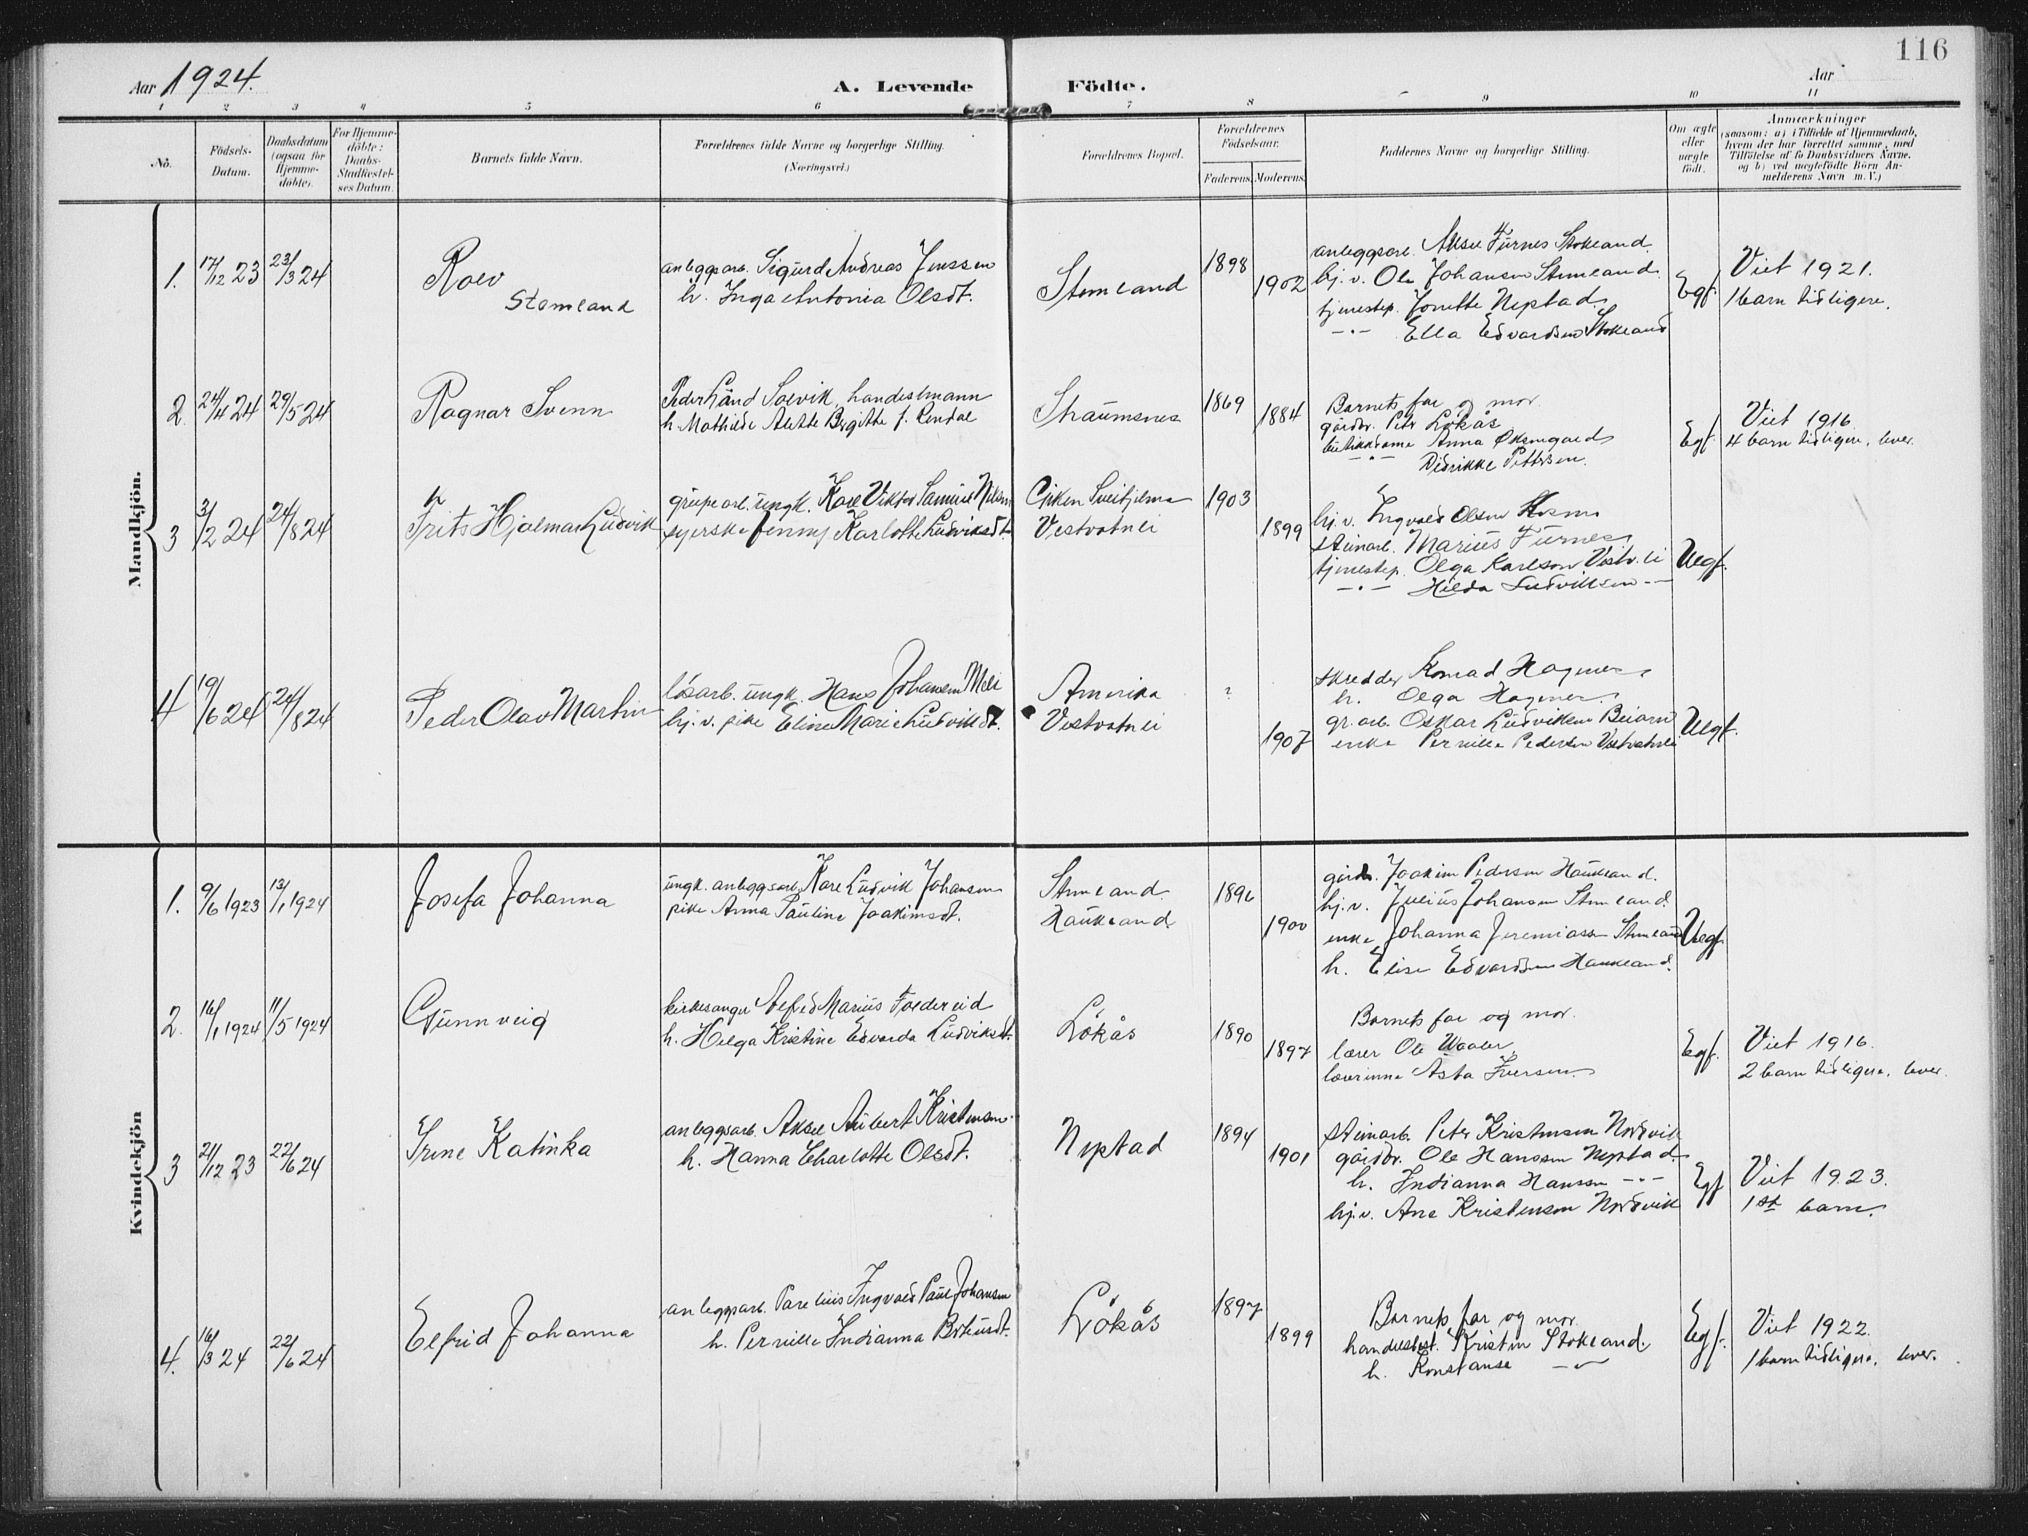 116
Aar 1924.
A. Levende Födte.
Aar
1 2 3 4 5 6 7 8 9 10 11
No.
Födsels-
Datum.
Daabsdatum
(ogsaa for
Hjemme-
döbte).
For Hjemme-
döbte:
Daabs-
Stadfæstel-
ses Datum.
Barnets fulde Navn.
Forældrenes fulde Navne og borgerlige Stilling.
(Næringsvei.)
Forældrenes Bopæl.
Forældrenes
Födselsaar.
Faderens. Moderens.
Faddernes Navne og borgerlige Stilling.
Om ægte
eller
uægte
födt.
Anmærkninger
(saasom: a) i Tilfælde af Hjemmedaab,
hvem der har forrettet samme, med
Tilföielse af to Daabsvidners Navne,
og b) ved uægtefödte Börn An-
melderens Navn m. V.)
Mandkjön.
1. 17/12 23 23/3 24
Rolv
Stemland
anleggsarb. Sigurd Andreas Jenssen
h. Inga Antonia Olsdt.
Stemland
1898
1902
anleggsarb. Aksel Furnes Stokland.
hj. v. Ole Johansen Stemland.
tjenestep. Jonette Nepstad.
-"- Ella Edvardsen Stokland
Egf.
Viet 1921.
1 barn tidligere.
2. 24/4 24 29/5 24
Ragnar Svenn
Peder Lånd Solvik, handelsmann
h. Mathilde Alette Bergitte f. Lendal
Straumsnes
1869
1884
Barnets far og mor.
gårdbr. Petr Løkås
butikkdame Anna Øksnegaard
-"- Didrikke Pettersen.
Egf.
Viet 1916.
4 barn tidligere, lever.
3 3/2 24 24/8 24
Frits Hjalmar Ludvik
grubearb. ungk. Karl Viktor Samuel Nilsen
syerske Jenny Karlotte Ludviksdt.
Sulitjelma
Vestvatnli
1903
1899
hj. v. Ingvald Olsen
steinarb. Marius Furnes
tjenestep. Olga Karlson Vestv.li
-"- Hilda Ludviksen -"-
Uegf.
4 19/6 24 24/8 24
Peder Olav Martin
løsarb. ungk. Hans Johansen Meli
hj. v. pike Eline Marie Ludviksdt.
Amerika
Vestvatnli
?
1907
skredder Konrad Hagenes
h. Olga Hagenes.
gr. arb. Oskar Ludviksen Beiarn
enke Pernille Pedersen Vestvatnli
Uegf.
Kvindekjön
1. 9/6 1923 13/1 1924
Josefa Johanna
ungk. anleggsarb. Karl Ludvik Johansen
pike Anna Pauline Joakimsdt.
Stemland
Haukland
1896
1900
gårdbr. Joakim Pedersen Haukland.
hj. v. Julius Johansen Stemland.
enke Johanna Jeremiassen Stemland
h. Elise Edvardsen Haukland.
Uegf.
2. 16/1 1924 11/5 1924
Gunnveig
kirkesanger Alfred Marius Foldereid
h. Helga Kristine Edvarda Ludviksdt.
Løkås
1890
1897
Barnets far og mor.
lærer Ole Waaler.
lærerinne Asta Iversen.
Egf.
Viet 1916.
2 barn tidligere, lever.
3 21/12 23 22/6 24
Irene Katinka
anleggsarb. Aksel Hilbert Kristensen
h. Hanna Charlotte Olsdt.
Nepstad
1894
1901
steinarb. Peter Kristensen Nordvik
gårdbr. Ole Hanssen Nepstad
h. Indianna Hanssen -"-
hj. v. Ane Kristensen Nordvik
Egf
Viet 1923.
1st barn.
4. 16/3 24 22/6 24
Elfrid Johanna
anleggsarb. Parelius Ingvald Paul Johansen
h. Pernille Indianna
Løkås
1897
1899
Barnets far og mor.
handelsbest. Kristen Stokland.
h. Konstanse -"-
Egf.
Viet 1922.
1 barn tidligere, lever.